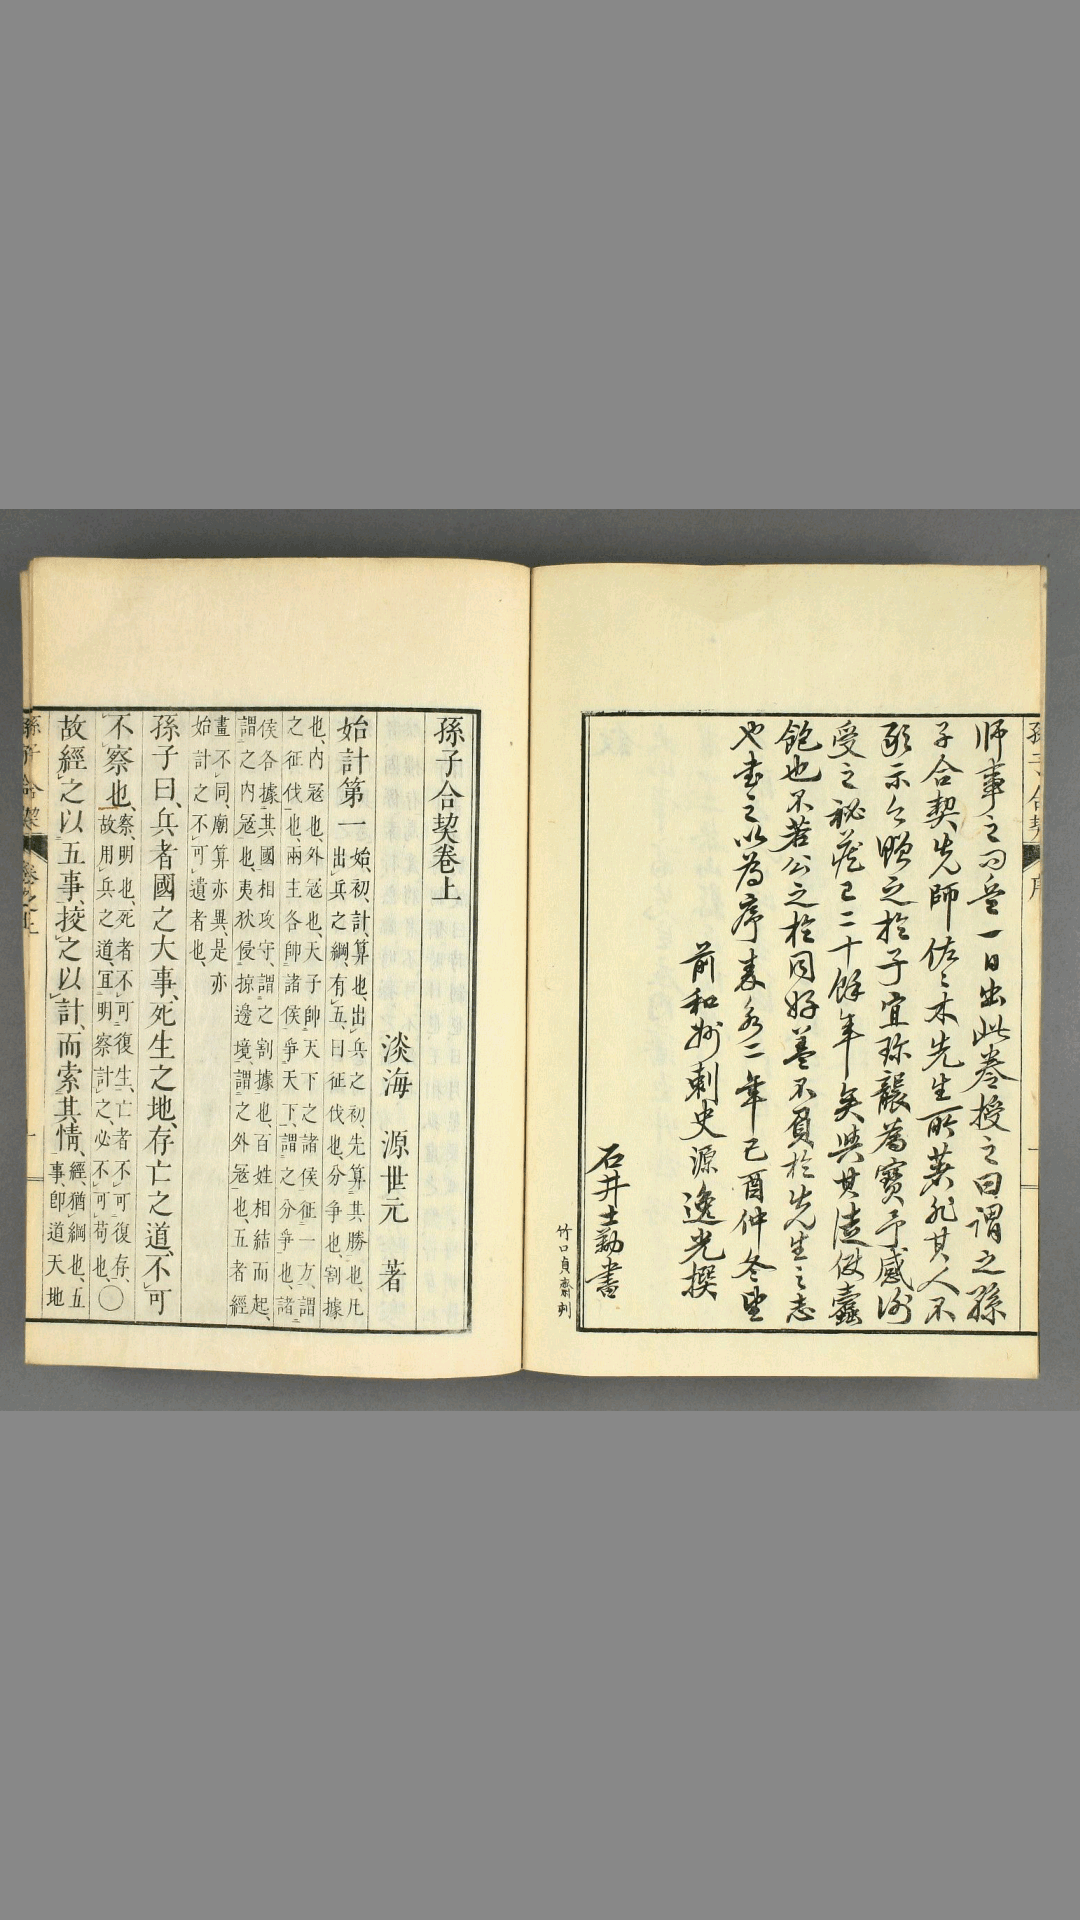 師事之問無一日出此卷授之曰謂之孫
子合契先師佐々木先生所著非其人不
敢示今贈之於子宜珍襲為寶予感泐
受之祕蔵已二十餘年矣與其徒伎蠹
飽也不若公之於同好蓋不負於先生之志
也書之以為序嘉永二年己酉仲冬望
前和州刺史源逸光撰
石井士勤書
竹口貞齋刻
孫子合契 序
孫子合契卷上
淡海 源世元 著
始計第一
始、初、計、算也、出兵之初、先算其勝也、凡
出兵之綱、有五、曰征伐也、分爭也、割據
也、内寇也、外寇也、天子帥天下之諸侯征一方、謂
之征伐也、兩主各帥諸侯爭天下、謂之分爭也、諸
侯各據其國相攻守、謂之割據也、百姓相結而起、
謂之内寇也、夷狄侵掠邊境、謂之外寇也、五者經
畫不同、廟算亦異、是亦
始計之不可遺者也、
孫子曰、兵者國之大事、死生之地、存亡之道、不可
不察也、
察、明也、死者不可復生、亡者不可復存、
故用兵之道、宜明察計之、必不可苟也、〇
故經之以五事、挍之以計、而索其情、
經、猶綱也、五
事、卽道天地
孫子合契 卷之上 一